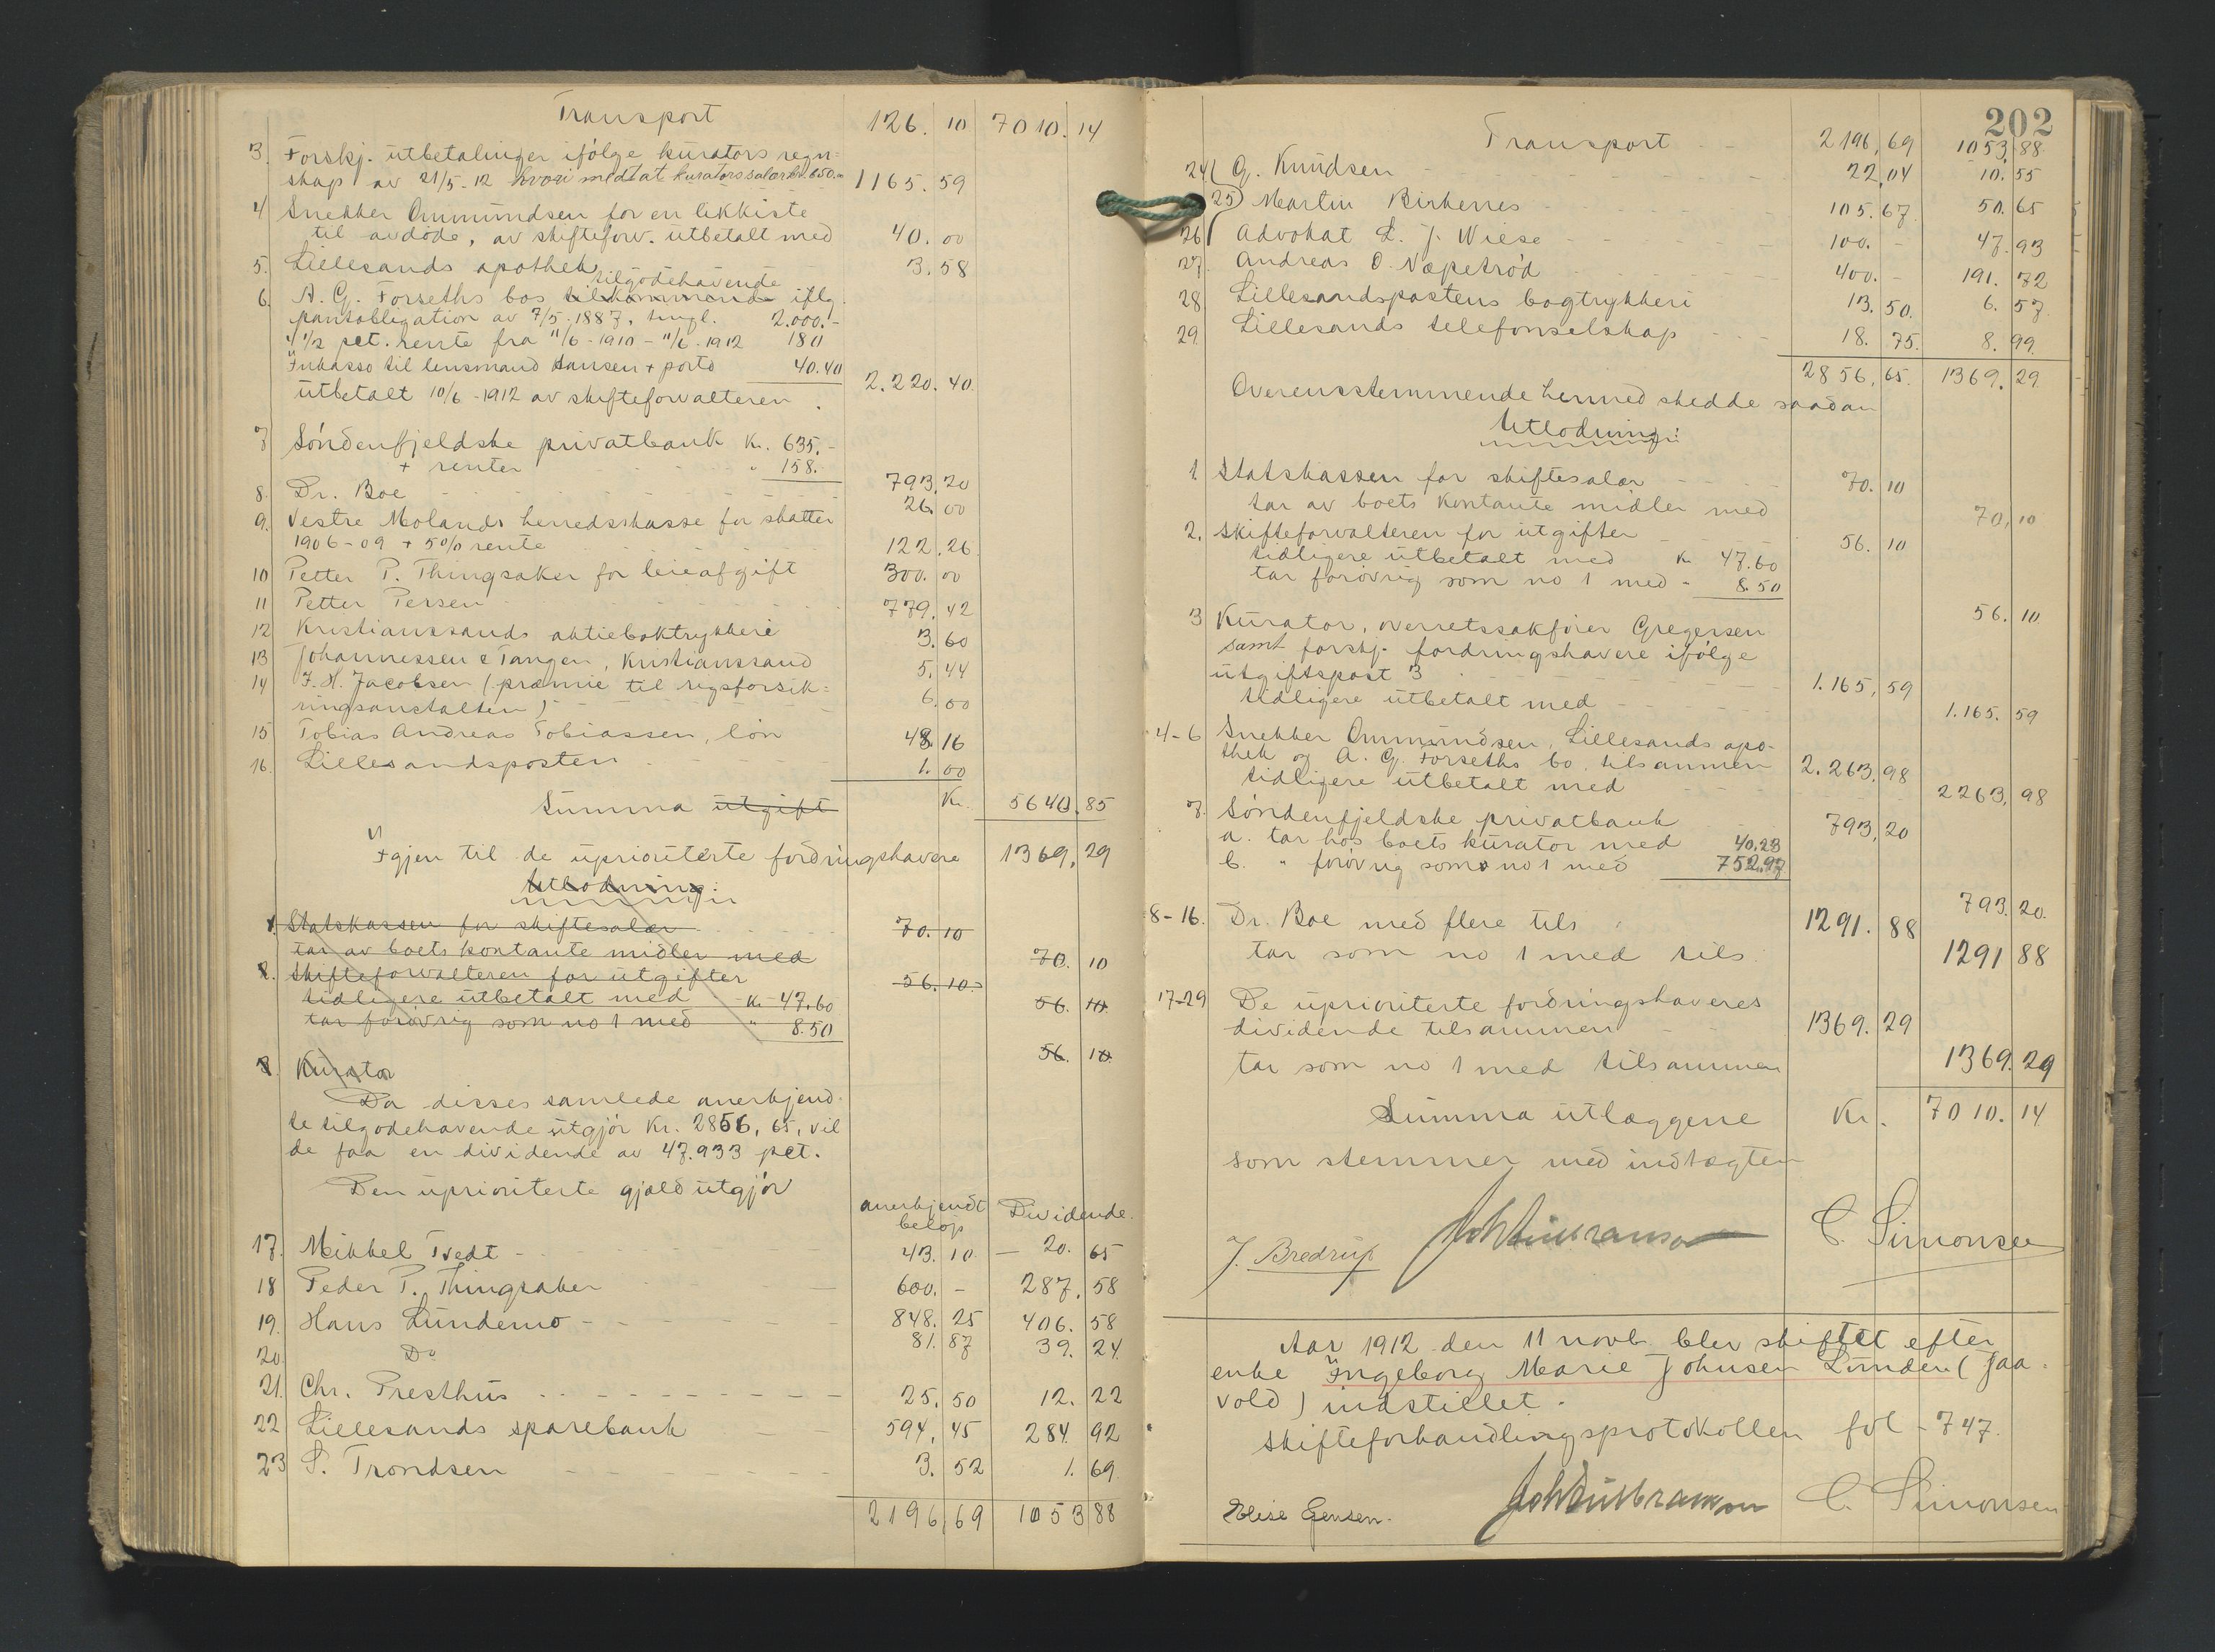 Transport 126. 10 7010. 14
3. Forskj. utbetalinger ifölge kurators regn-
skap av 21/5-12 hvori medtat kurators salær kr. 650.00 1165. 59
4 Snekker Ommundsen for en likkiste
til avdöde, av skifteforv. utbetalt med 40. 00
5. Lillesands apothek 3. 58
tilgodehavende
6. A. G. Forseths bos tilkommende iflg.
pantobligation av 7/5. 1887, tingl. 2.000.-
4 1/2 pct. rente fra 11/6-1910 - 11/6-1912 180
Inkasso til lensmand Hansen + porto 40.40
utbetalt 10/6-1912 av skifteforvalteren. 2.220. 40
7 Söndenfjeldske privatbank Kr. 635.-
+ renter " 158.- 793. 20
8. Dr. Boe 26. 00
9. Vestre Molands herredskasse for skatter
1906-09 + 5% rente 122. 26
10 Petter P. Thingsaker for leieafgift 300. 00
11 Petter Persen 779. 42
12 Kristianssands aktieboktrykkeri 3. 60
13 Johannessen & Tangen, Kristianssand 5. 44
14 J. H. Jacobsen (præmie til rigsforsik-
ringsanstalten) 6. 00
15 Tobias Andreas Tobiassen, lön 48. 16
16. Lillesandsposten 1. 00
Summa utgift Kr. 5640. 85
Igjen til de uprioriterte fordringshavere 1369. 29
Utlodning:
1. Statskassen for skiftesalær 70. 10
tar av boets kontante midler med 70. 10
2. Skifteforvalteren for utgifter 56. 10.
tidligere utbetalt med Kr. 47.60 56. 10.
tar forövrig som no 1 med " 8.50
56. 10
3 Kurator
Da disses samlede anerkjend-
te tilgodehavende utgjör Kr. 2856, 65, vil
de faa en dividende av 47.933 pct.
Den uprioriterte gjæld utgjör
anerkjendt belöp Dividende.
17. Mikkel Tvedt 43. 10 20. 65
18 Peder P. Thingsaker 600. - 287. 58
19. Hans Lundemo 848. 25 406. 58
20. Do 81. 87 39. 24
21. Chr. Presthus 25. 50 12. 22
22 Lillesands sparebank 594. 45 284 92
23 S. Trondsen 3. 52 1. 69
2196 69 1053 88
202
Transport 2196, 69 1053. 88
24 G. Knudsen 22, 04 10. 55
25 Martin Birkenes 105. 67 50. 65
26 Advokat L. J. Wiese 100. - 47. 93
27. Andreas O. Næpetröd 400. - 191. 72
28. Lillesandspostens bogtrykkeri 13. 50. 6. 57
29 Lillesands telefonselskap 18. 75. 8. 99
2856, 65. 1369. 29
Overensstemmende hermed skedde saadan
Utlodning:
1. Statskassen for skiftesalær 70. 10
tar av boets kontante midler med 70, 10
2. Skifteforvalteren for utgifter 56. 10
tidligere utbetalt med Kr 47.60
tar forövrig som no 1 med " 8.50
56. 10
3 Kurator, overretssakförer Gregersen
samt forskj. fordringshavere ifölge
utgiftspost 3 1.165, 59
tidligere utbetalt med 1.165. 59
4-6 Snekker Ommundsen, Lillesands apo-
thek og A. G. Forseths bo, tilsammen 2.263, 98
tidligere utbetalt med 2263, 98
7. Söndenfjeldske privatbank 793, 20
a. tar hos boets kurator med 40.23
b. " forövrig som no 1 med 752.97
793. 20.
8-16. Dr. Boe med flere tils 1291. 88
tar som no 1 med tils. 1291 88
17-29 De uprioriterte fordringshaveres
dividende tilsammen 1369. 29
tar som no 1 med tilsammen 1369. 29
Summa utlæggene Kr. 7010. 14
som stemmer med indtægten
J. Bredrup C. Simonsen
Aar 1912 den 11 novb. blev skiftet efter
enke Ingeborg Marie Johnsen Lunden (Jaa-
vold) indstillet.
Skifteforhandlingsprotokollen fol - 747.
Elise Jensen. C. Simonsen